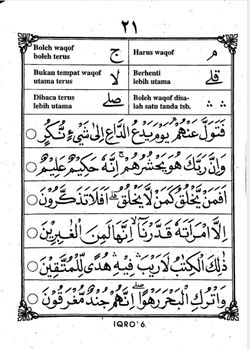 ٢١
Boleh waqof
boleh terus
ج
Harus waqof
م
Bukan tempat waqof
utama terus
لا
Berhenti
lebih utama
قلے
Dibaca terus
lebih utama
صلے
Boleh waqof disa-
lah satu tanda tsb.
ۛ ۛ
فَتَوَلَّ عَنْهُمْ ۘ يَوْمَ يَدْعُ الدَّاعِ اِلٰى شَيْءٍ نُّكُرٍ
وَاِنَّ رَبَّكَ هُوَ يَحْشُرُهُمْ ۚ اِنَّهٗ حَكِيْمٌ عَلِيْمٌ
اَفَمَنْ يَّخْلُقُ كَمَنْ لَّا يَخْلُقُ ۗ اَفَلَا تَذَكَّرُوْنَ
اِلَّا امْرَاَتَهٗ قَدَّرْنَآ ۙ اِنَّهَا لَمِنَ الْغٰبِرِيْنَ
ذٰلِكَ الْكِتٰبُ لَا رَيْبَ ۛ فِيْهِ ۛ هُدًى لِّلْمُتَّقِيْنَ
وَاتْرُكِ الْبَحْرَ رَهْوًا ۗ اِنَّهُمْ جُنْدٌ مُّغْرَقُوْنَ
IQRO' 6